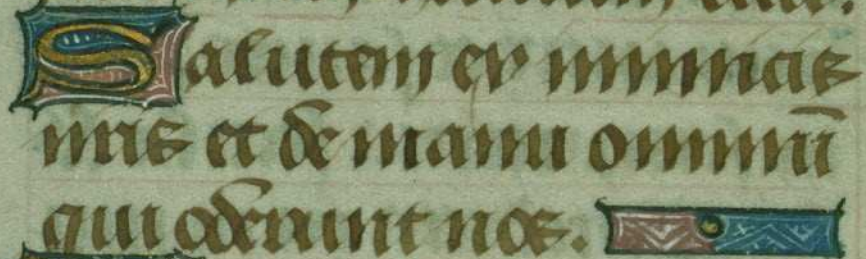 Salutem ex inimicis
nr̄is et de manu omniū
qui oderunt nos.